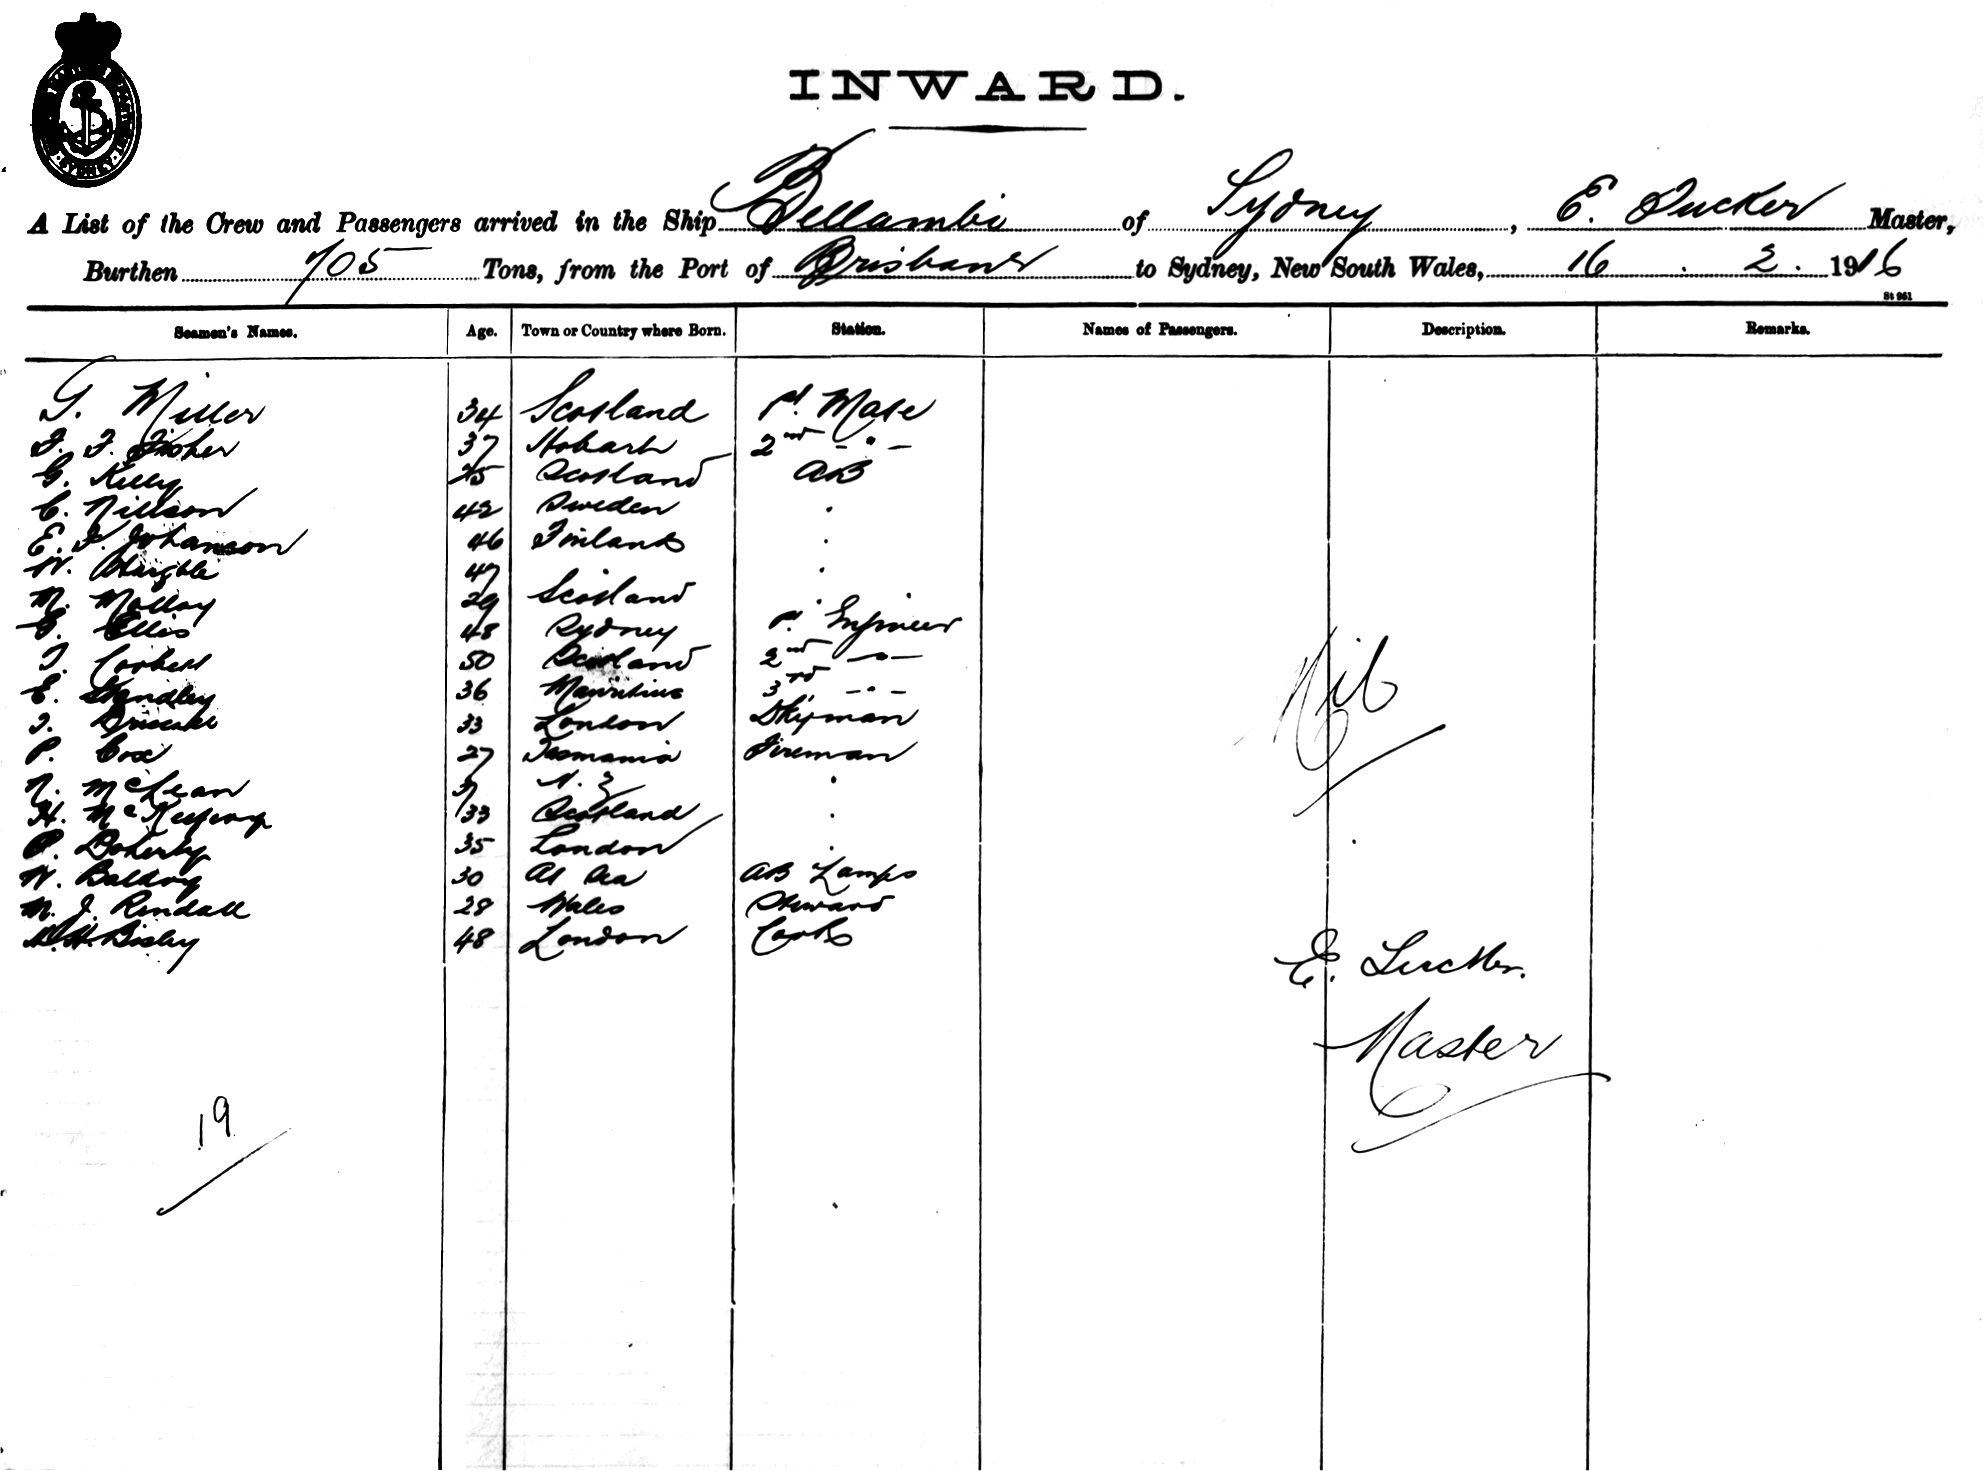 INWARD.
A List of the Crew and Passengers arrived in the Ship Bellambi of Sydney, E. Tucker Master,
Burthen 705 Tons, from the Port of Brisbane to Sydney, New South Wales, 16 . 2 . 1916
St 961
Seamen's Names. Age. Town or Country where Born. Station. Names of Passengers. Description. Remarks.
G. Miller 34 Scotland 1st Mate
F. F. Fisher 37 Hobart 2nd - " -
G. Kelly Scotland AB
C. Nillson 42 Sweden "
E. F. Johanson 46 Finland "
W. 47 "
M. Molloy 29 Scotland "
E. Ellis 48 Sydney 1st Engineer
T. Corbett 50 Scotland 2nd - " -
E. Standley 36 Mauritius 3rd - " -
T. Driscoll 33 London Dkyman
P. Cox 27 Tasmania Fireman
N. McLean 37 N. Z "
H. 33 Scotland "
P. Doherty 35 London "
W. Baldry 30 At Sea AB Lamps
M. J. Rendall 28 Wales Steward
H. Bisley 48 London Cook
Nil
E. Tucker.
Master
19
SYDNEY